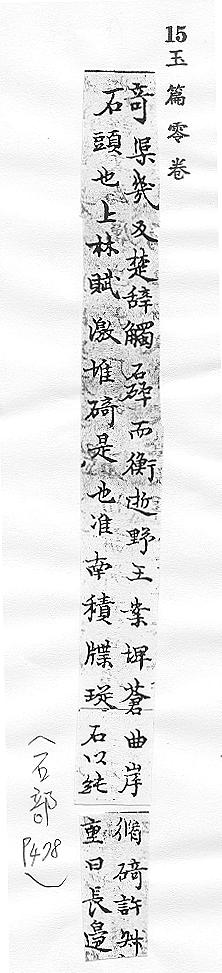 15 玉篇零卷
奇渠幾反楚辭觸石碕而衡逝野王案埤蒼曲岸
石頭也上林賦激堆碕是也淮南積牒琁石以純
脩碕許叔
重曰長邉
(石部 P478)